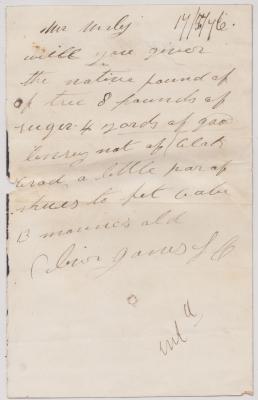 Mr Wily 17/7/76.
will you giver
the native pound of
of tree 8 pounds of
suger 4 yords of goo
not of blak
tread a little par of
shues to fet babe
13 mounes old
James